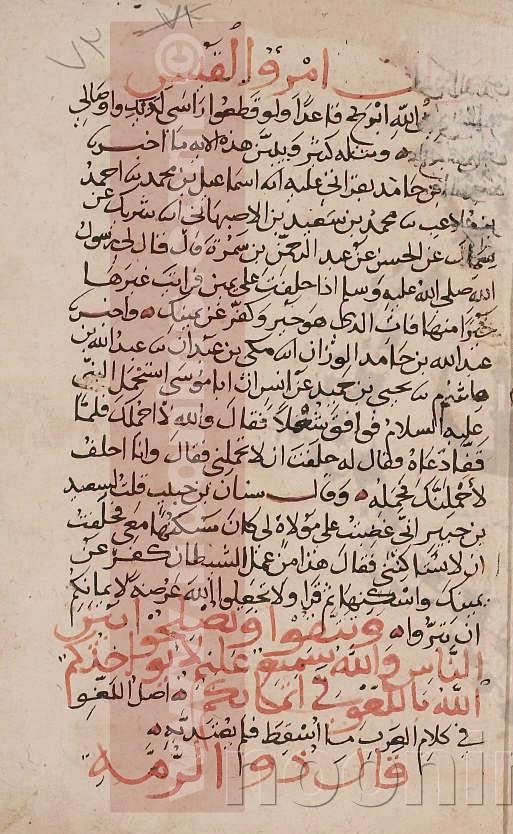 ٧٣
امرؤ القيس
الله ابرح قاعدا ولو قطعوا راسي لديك واوصالي
ومثله كثير ويبين هذه الاية ما اخبرنا
بن حامد بقراتي عليه انا اسماعيل بن محمد بنا احمد
محمد بن سعيد بن الاصبهاني انا شريك عن
سماك عن الحسن عن عبد الرحمن بن سمرة قال قال لي رسول
الله صلى الله عليه وسلم اذا حلفت على يمين فرايت غيرها
خيرا منها فات الذي هو خير وكفر عن يمينك واخبرنا
عبد الله بن حامد الوزان انا مكي بن عبدان نا عبد الله بن
هاشم نا يحيى بن حميد عن انس ان ابا موسى استحمل النبي
عليه السلام فوافق شغلا فقال والله لا احملك فلما
قفا دعاه فقال له حلفت ان لا تحملني فقال وانا احلف
لاحملنك فحمله وقال سنان بن حبيب قلت لسعيد
بن جبير اني غضبت على مولاة لي كان مسكنها معي فحلفت
ان لا تساكنني فقال هذا من عمل الشيطان كفر عن
يمينك واسكنها ثم قرا ولا تجعلوا الله عرضة لايمانكم
ان تبروا وتتقوا وتصلحوا بين
الناس والله سميع عليم لا يواخذكم
الله باللغو في ايمانكم اصل اللغو
في كلام العرب ما اسقط فلم يعتد به
قال ذو الرمة
noor